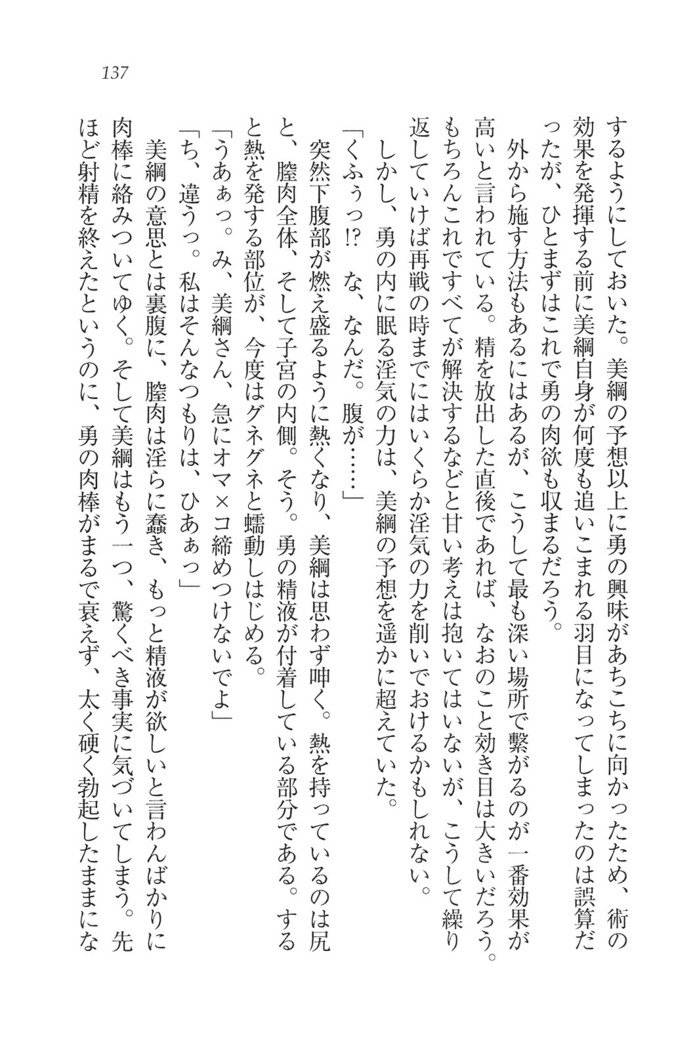 137
するようにしておいた。美綱の予想以上に勇の興味があちこちに向かったため、術の
効果を発揮する前に美綱自身が何度も追いこまれる羽目になってしまったのは誤算だ
ったが、ひとまずはこれで勇の肉欲も収まるだろう。
外から施す方法もあるにはあるが、こうして最も深い場所で繋がるのが一番効果が
高いと言われている。精を放出した直後であれば、なおのこと効き目は大きいだろう。
もちろんこれですべてが解決するなどと甘い考えは抱いてはいないが、こうして繰り
返していけば再戦の時までにはいくらか淫気の力を削いでおけるかもしれない。
しかし、勇の内に眠る淫気の力は、美綱の予想を遥かに超えていた。
「くふぅっ!?　な、なんだ。腹が……」
突然下腹部が燃え盛るように熱くなり、美綱は思わず呻く。熱を持っているのは尻
と、膣肉全体、そして子宮の内側。そう。勇の精液が付着している部分である。する
と熱を発する部位が、今度はグネグネと蠕動しはじめる。
「うあぁっ。み、美綱さん、急にオマ×コ締めつけないでよ」
「ち、違うっ。私はそんなつもりは、ひあぁっ」
美綱の意思とは裏腹に、膣肉は淫らに蠢き、もっと精液が欲しいと言わんばかりに
肉棒に絡みついてゆく。そして美綱はもう一つ、驚くべき事実に気づいてしまう。先
ほど射精を終えたというのに、勇の肉棒がまるで衰えず、太く硬く勃起したままにな